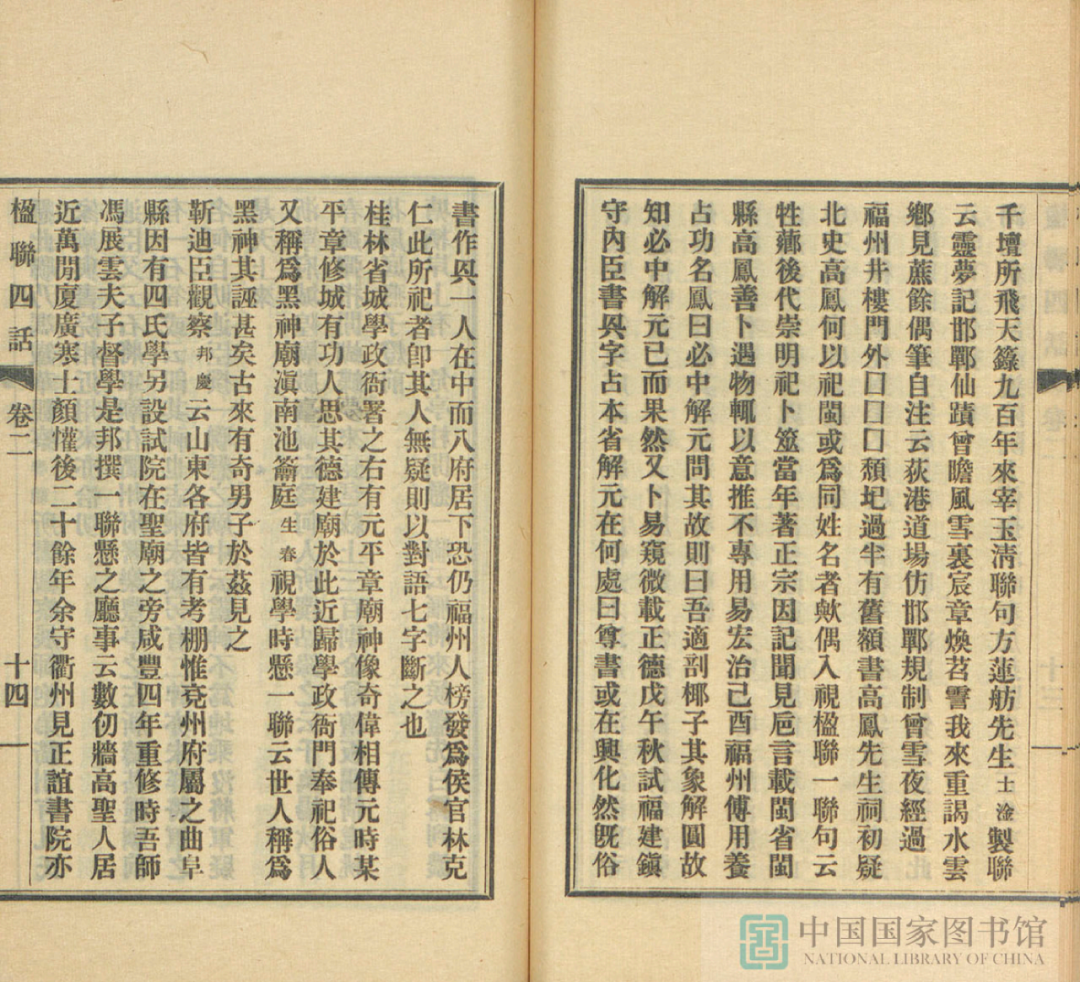 千壇所飛天籙九百年來宰玉清聯句方蓮舫先生士淦製聯
云靈夢記邯鄲仙蹟曾瞻風雪裏宸章煥苕霅我來重謁水雲
鄉見蔗餘偶筆自注云荻港道場仿邯鄲規制曾雪夜經過
福州井樓門外口口口頹圯過半有舊額書高鳳先生祠初疑
北史高鳳何以祀閩或爲同姓名者歟偶入視楹聯一聯句云
牲薌後代崇明祀卜筮當年著正宗因記聞見巵言載閩省閩
縣高鳳善卜遇物輒以意推不專用易宏治己酉福州傅用養
占功名鳳曰必中解元問其故則曰吾適剖椰子其象解圓故
知必中解元已而果然又卜易窺微載正德戊午秋試福建鎭
守內臣書㒷字占本省解元在何處曰尊書或在興化然旣俗
書作㒷一人在中而八府居下恐仍福州人榜發爲侯官林克
仁此所祀者卽其人無疑則以對語七字斷之也
桂林省城學政衙署之右有元平章廟神像奇偉相傳元時某
平章修城有功人思其德建廟於此近歸學政衙門奉祀俗人
又稱爲黑神廟滇南池籥庭生春視學時懸一聯云世人稱爲
黑神其誣甚矣古來有奇男子於茲見之
靳迪臣觀察邦慶云山東各府皆有考棚惟兗州府屬之曲阜
縣因有四氏學另設試院在聖廟之旁咸豐四年重修時吾師
馮展雲夫子督學是邦撰一聯懸之廳事云數仞牆高聖人居
近萬閒廈廣寒士顏懽後二十餘年余守衢州見正誼書院亦
楹聯四話 卷二 十四
中国国家图书馆
NATIONAL LIBRARY OF CHINA